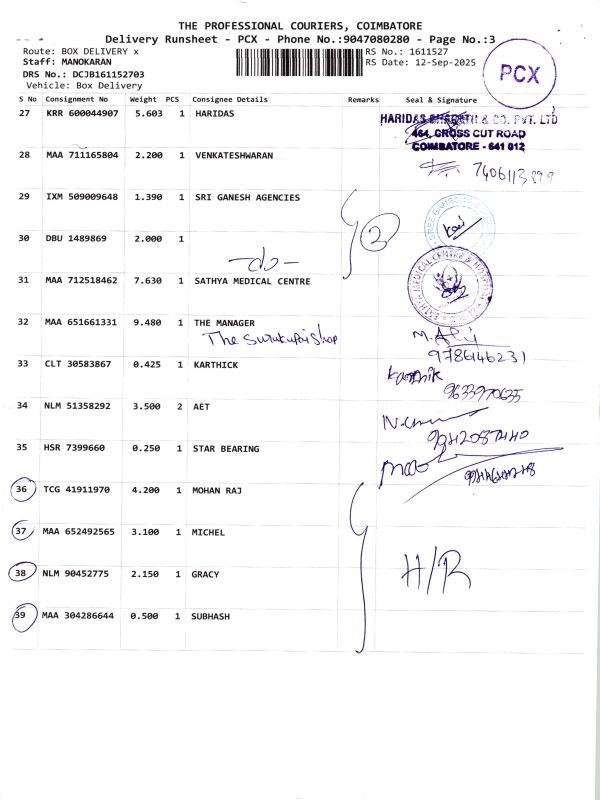 THE PROFESSIONAL COURIERS, COIMBATORE
Delivery Runsheet - PCX - Phone No.:9047080280 - Page No.:3
Route: BOX DELIVERY x RS No.: 1611527
Staff: MANOKARAN RS Date: 12-Sep-2025
DRS No.: DCJB161152703
Vehicle: Box Delivery
PCX
S No Consignment No Weight PCS Consignee Details Remarks Seal & Signature
27 KRR 600044907 5.603 1 HARIDAS
HARIDAS & CO. PVT. LTD
464, CROSS CUT ROAD
COIMBATORE - 641 012
28 MAA 711165804 2.200 1 VENKATESHWARAN
29 IXM 509009648 1.390 1 SRI GANESH AGENCIES
30 DBU 1489869 2.000 1
-do-
2
31 MAA 712518462 7.630 1 SATHYA MEDICAL CENTRE
SATHYA MEDICAL CENTRE & HOSPITAL
32 MAA 651661331 9.480 1 THE MANAGER
9786146231
33 CLT 30583867 0.425 1 KARTHICK
Karthik
34 NLM 51358292 3.500 2 AET
35 HSR 7399660 0.250 1 STAR BEARING
36 TCG 41911970 4.200 1 MOHAN RAJ
37 MAA 652492565 3.100 1 MICHEL
38 NLM 90452775 2.150 1 GRACY
H/R
39 MAA 304286644 0.500 1 SUBHASH